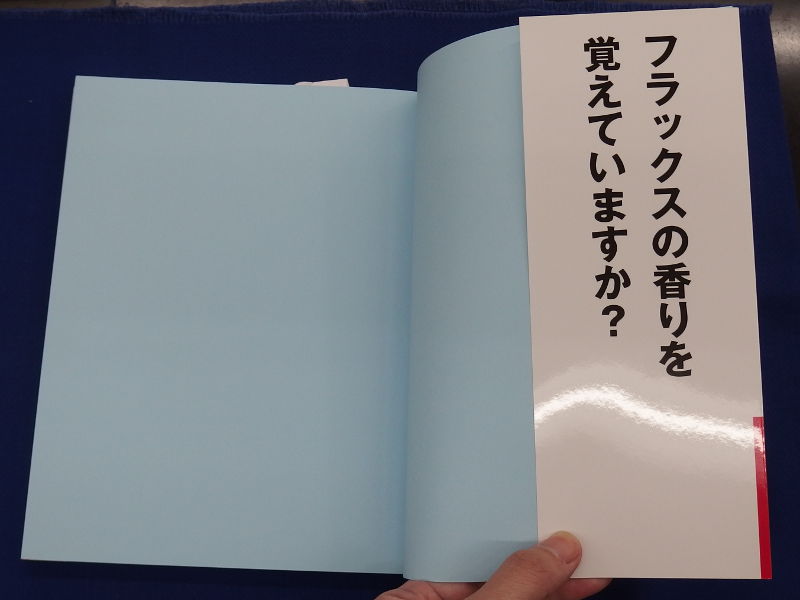 フラックスの香りを
覚えていますか？